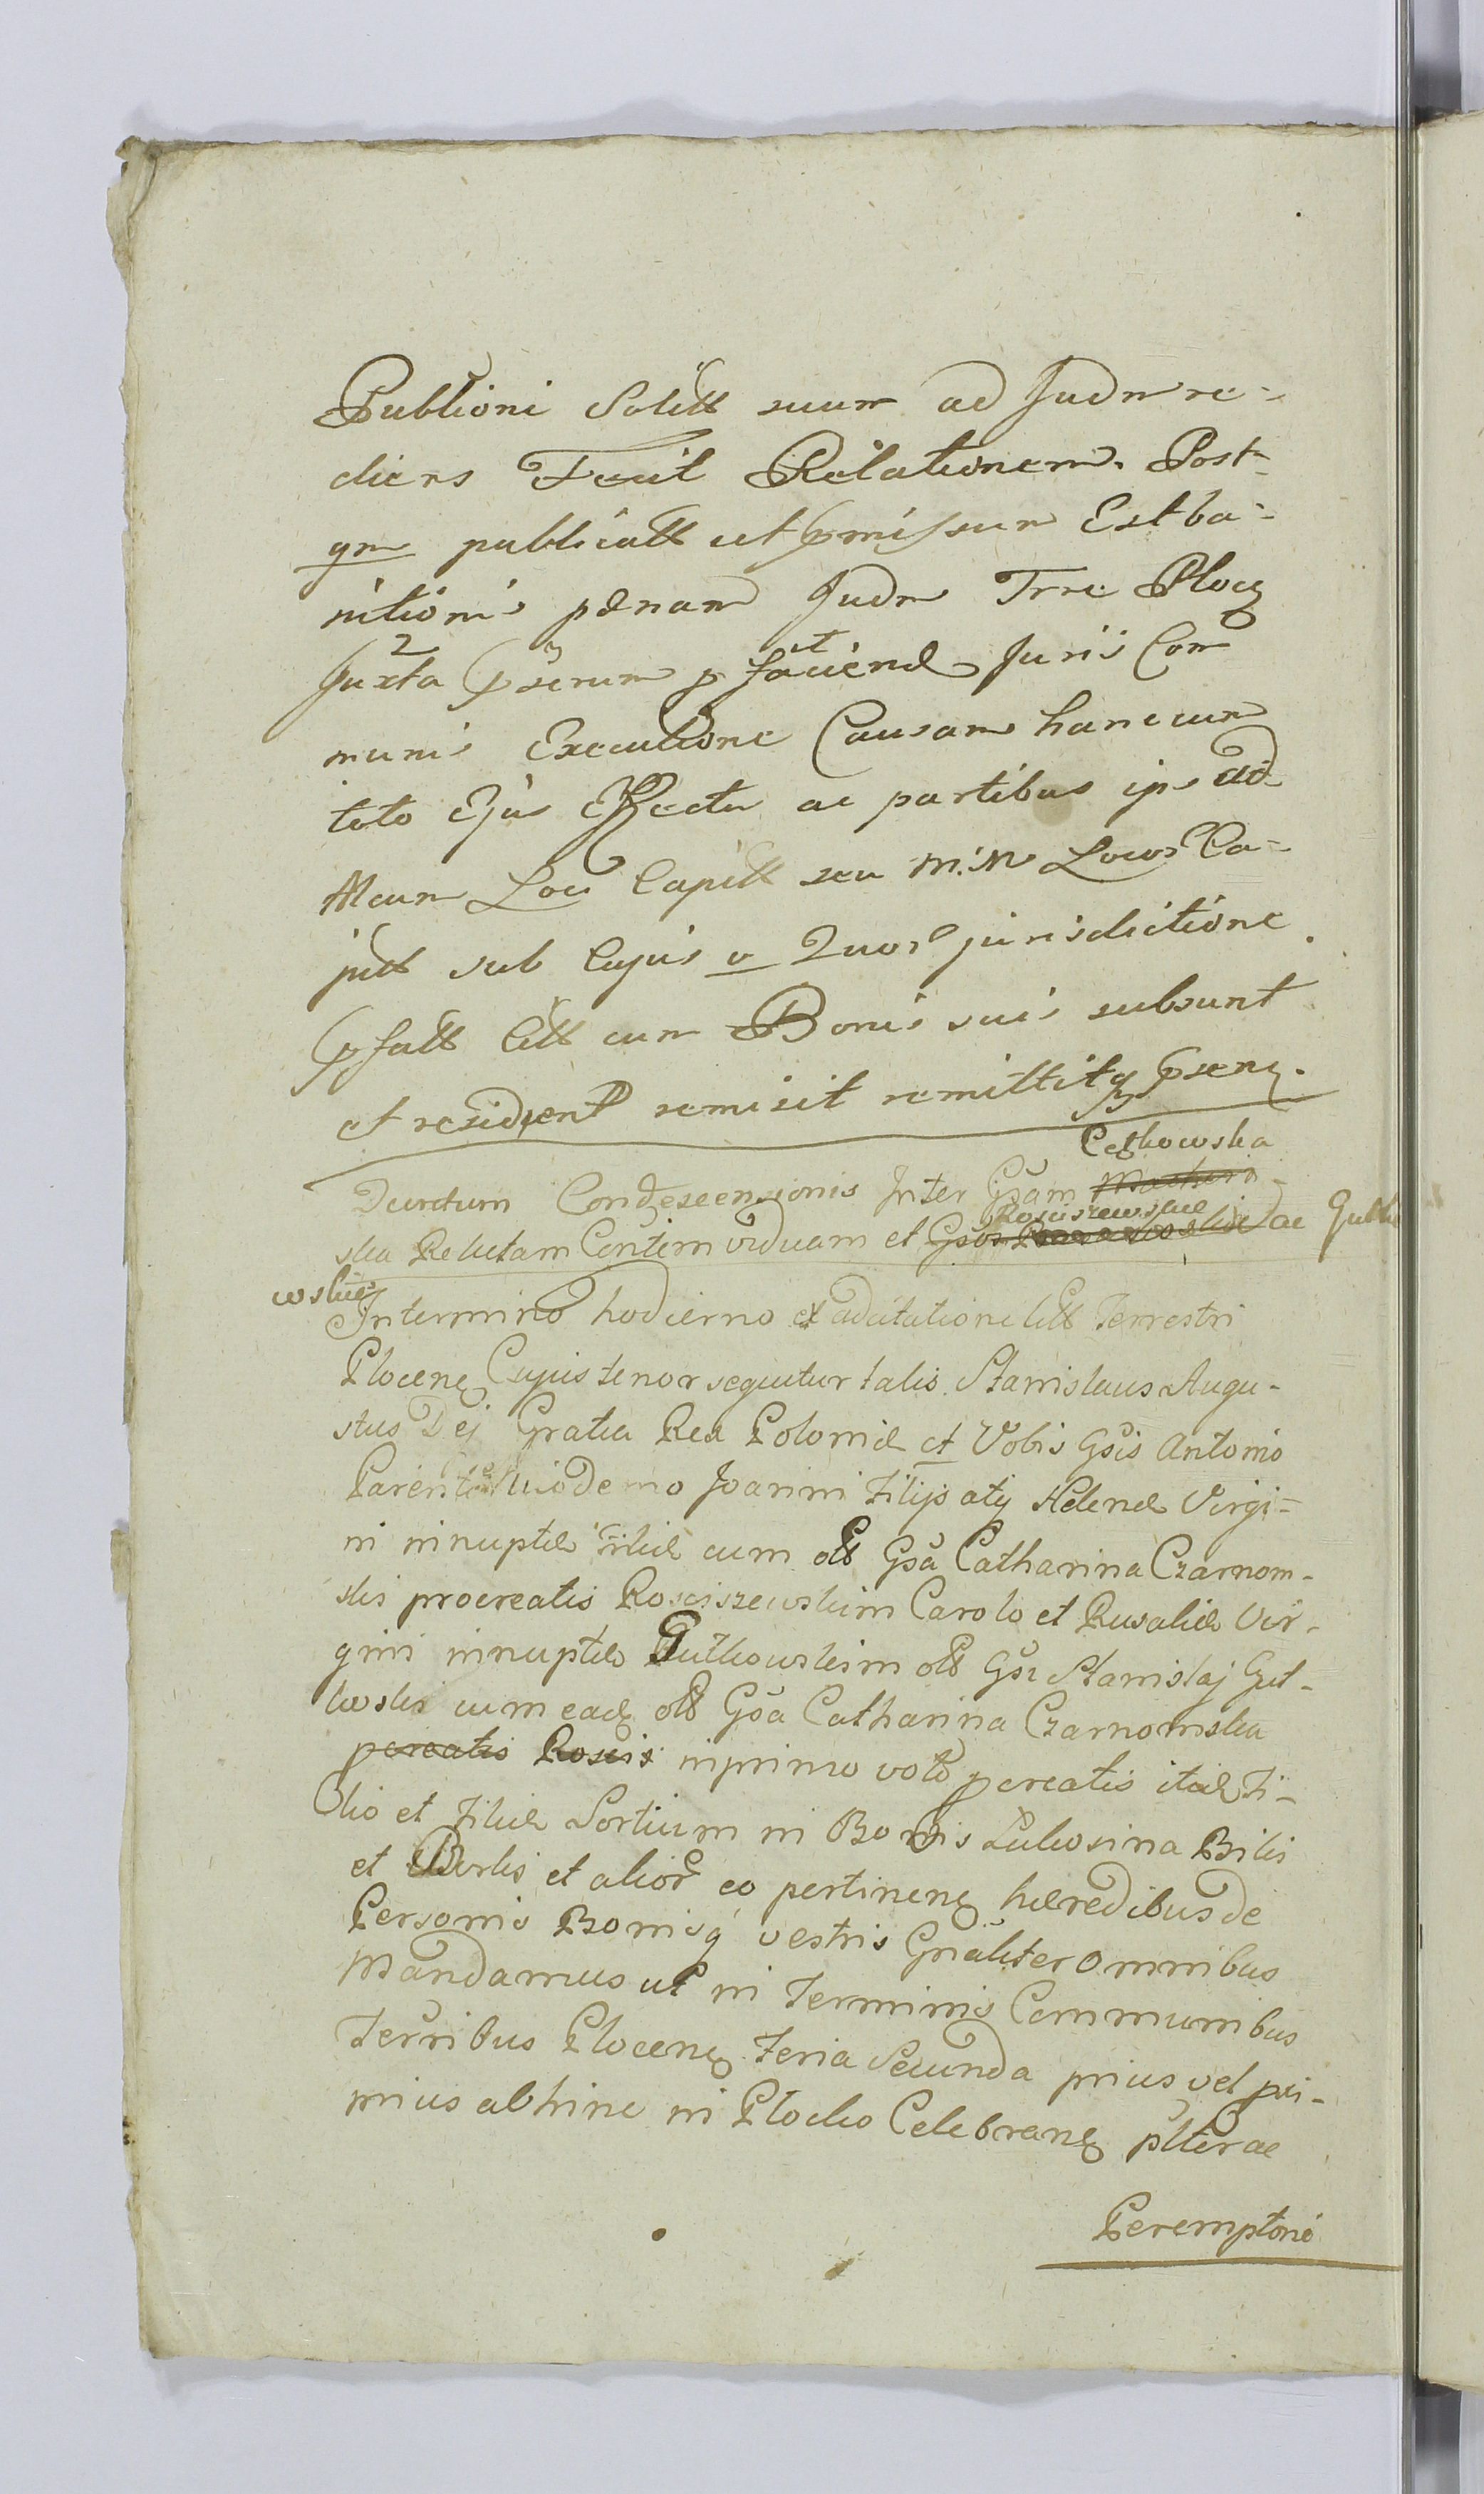 Publioni Solitt suum ad Judm re-
diens Fecit Relationem. Post-
qm publicatt ut pmissum Est ba-
nitionis pænam Judm Trre Plocen
Juxta pserum p faciend Juris Com
munis Executione Causam hanc cum
toto Ejus Effectu ac partibus ips ad
Alcum Loci Capitt seu M.M Locor Ca-
pitt sub Cujus v Quor jurisdictione
pfatt Citt cum Bonis suis subsunt
et resident remisit remittitq psens.
Ceykowska
Decretum Condescensionis Inter Gsam
Rosciszewskie
ska Relictam Contem viduam et Gsos ac Gutko
wskie
In termino hodierno ex adcitatione litt Terrestri
Plocens Cujus tenor sequitur talis. Stanislaus Augu-
stus Dei Gratia Rex Poloniæ et Vobis Gsis Antonio
Parenti Nicodemo Joanni Filijs atq Helenæ Virgi-
ni innuptæ Filiæ cum olt Gsa Catharina Czarnom-
skis procreatis Rosciszewskim Carolo et Rosaliæ Vir-
gini innuptæ Gutkowskim olt Gsi Stanislaj Gut-
kowski cum eadem olt Gsa Catharina Czarnomska
pcreatis Roscis in primo voto pcreatis itidem Fi-
lio et Filiæ Sortium in Bonis Łukosina Bilis
et Borki et alior eo pertinens hæredibus de
Personis Bonisq vestris Gnaliter omnibus
Mandamus ut in Terminis Communibus
Terribus Plocens Feria Secunda prius vel pri-
mius abhinc in Plocko Celebrans plter ac
Peremptorie